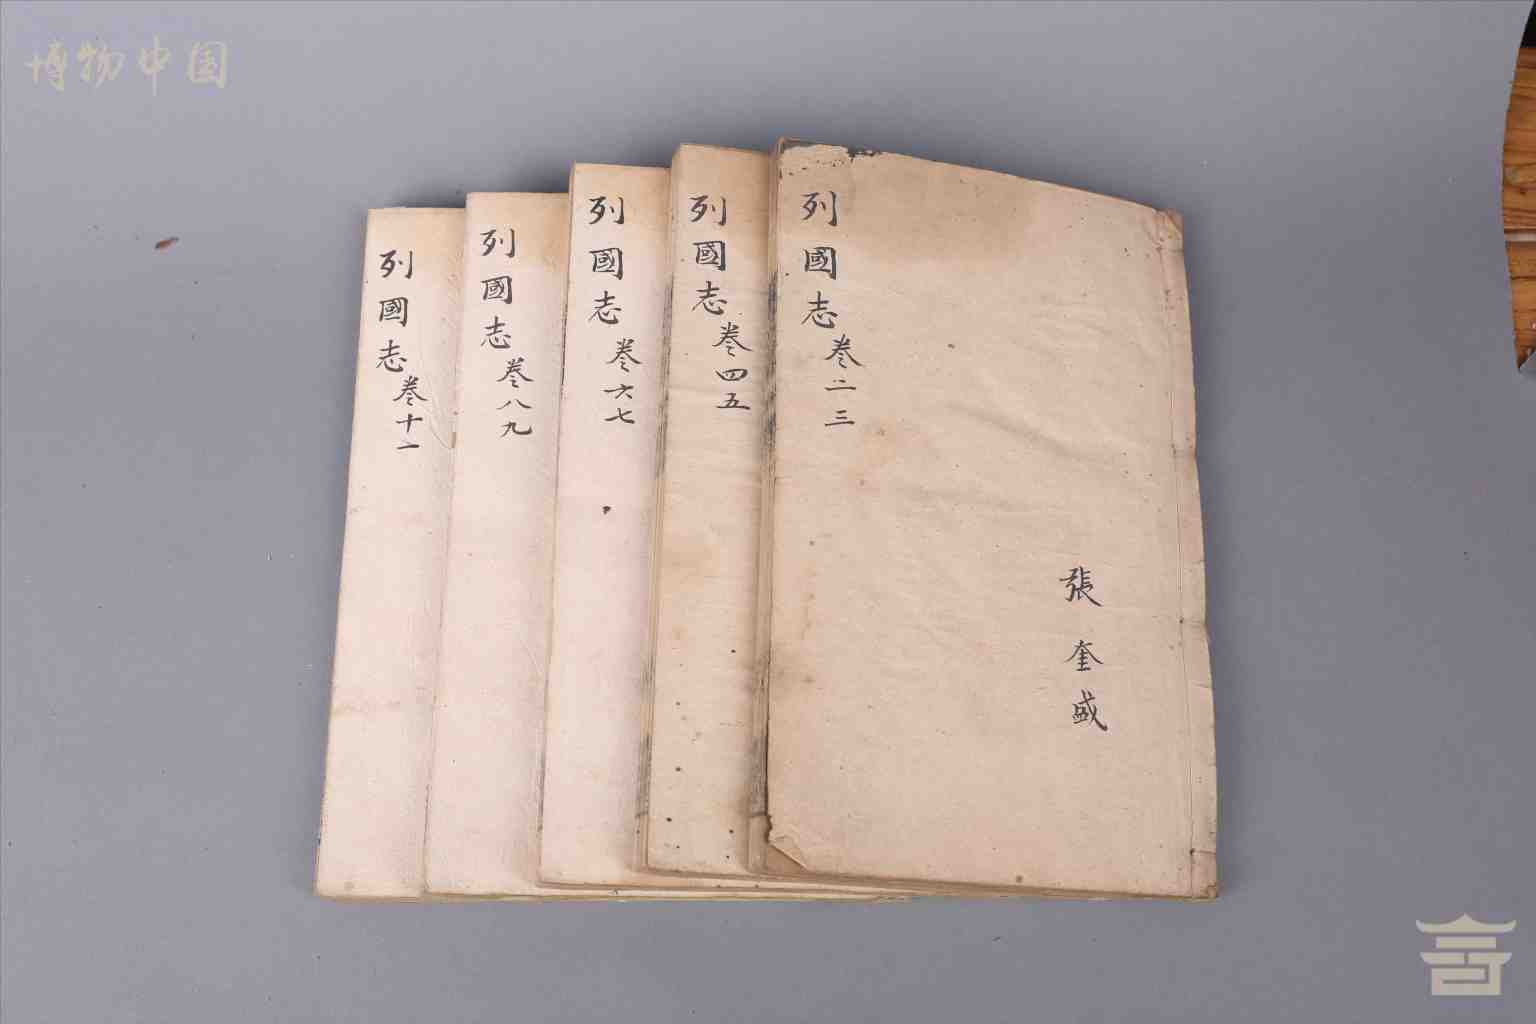 博物中国
列國志 卷二三
張奎盛
列國志 卷四五
列國志 卷六七
列國志 卷八九
列國志 卷十一